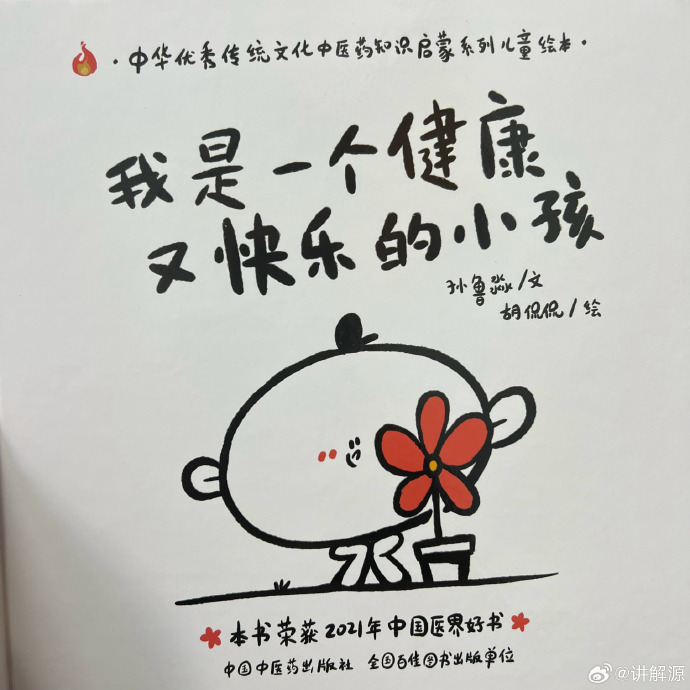 ·中华优秀传统文化中医药知识启蒙系列儿童绘本·
我是一个健康
又快乐的小孩
孙鲁淼/文
胡侃侃/绘
本书荣获2021年中国医界好书
中国中医药出版社 全国百佳图书出版单位
@讲解源